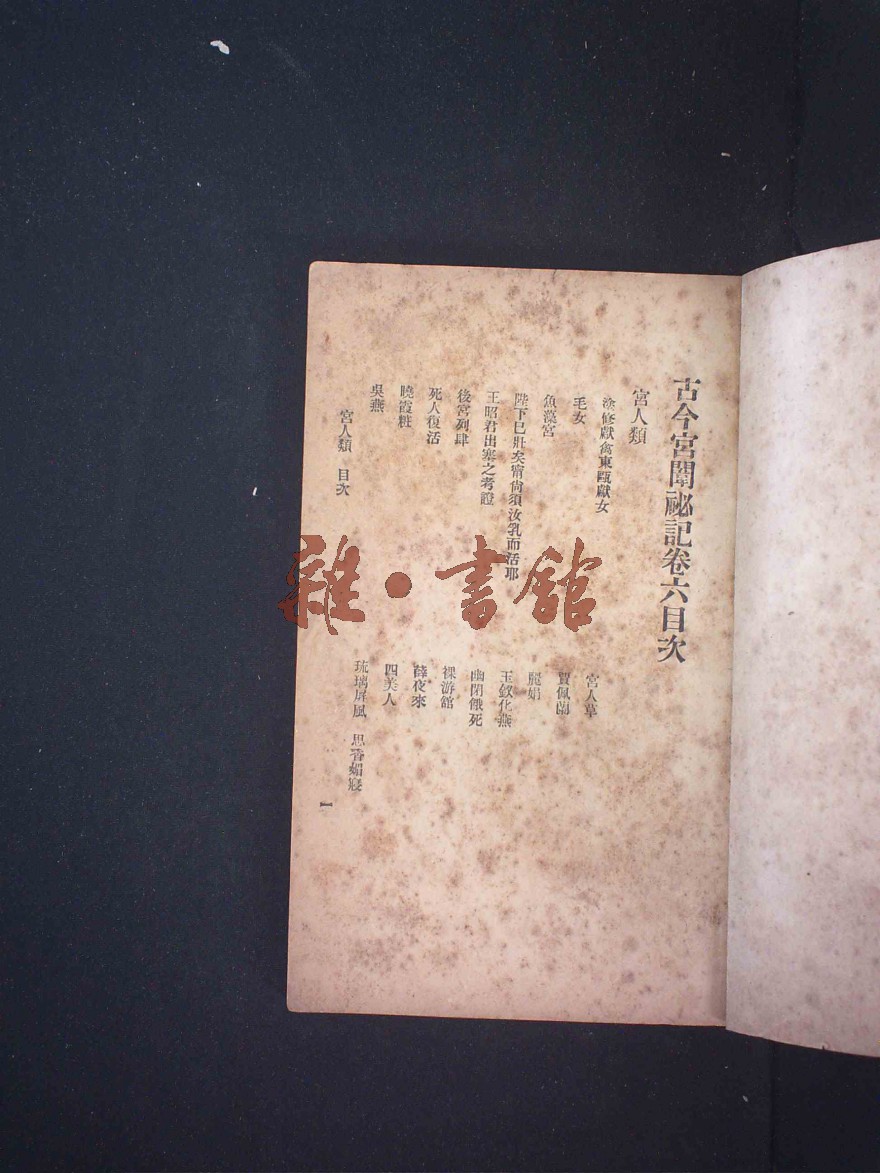 古今宮闈祕記卷六目次
宮人類
塗修獻禽東甌獻女
宮人草
毛女
賈佩蘭
魚藻宮
麗娟
陛下已壯矣甯尚須汝乳而活耶
玉釵化燕
王昭君出塞之考證
幽閉餓死
後宮列肆
裸游館
死人復活
薛夜來
曉霞粧
四美人
吳燕
琉璃屏風
思香媚寢
宮人類 目次
一
雜·書館